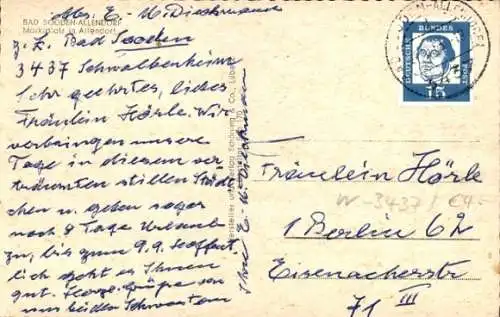 Abs. E.-M. Dieckmann
BAD SOODEN-ALLENDORF
Marktplatz in Allendorf
z. Z. Bad Sooden
3437 Schwalbenheim
Sehr geehrtes, liebes
Fräulein Hörle. Wir
verbringen unsere
Tage in diesem ver
träumten stillen Städt
chen u. geben sogar
noch 8 Tage Urlaub
zu, bis zum 9.9. Hoffent
lich geht es Ihnen
gut. Herzl. Grüße von
uns beiden Schwestern
Ihre E.-M. Dieckmann
Hersteller und Verlag Schöning & Co., Lübeck
DEUTSCHE BUNDESPOST
15
Fräulein Hörle
W-3437 / €4,-
1 Berlin 62
Eisenacherstr
71 III